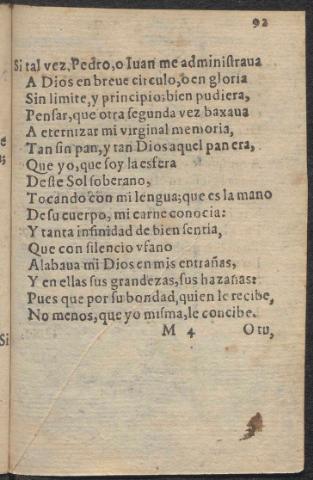 92
Si tal vez, Pedro, o Iuan me administraua
A Dios en breue circulo, o en gloria
Sin limite, y principio: bien pudiera,
Pensar, que otra segunda vez baxaua
A eternizar mi virginal memoria,
Tan sin pan, y tan Dios aquel pan era,
Que yo, que soy la esfera
Deste Sol soberano,
Tocando con mi lengua; que es la mano
De su cuerpo, mi carne conocia:
Y tanta infinidad de bien sentia,
Que con silencio vfano
Alabaua mi Dios en mis entrañas,
Y en ellas sus grandezas, sus hazañas:
Pues que por su bondad, quien le recibe,
No menos, que yo misma, le concibe.
M 4 O tu,
Si